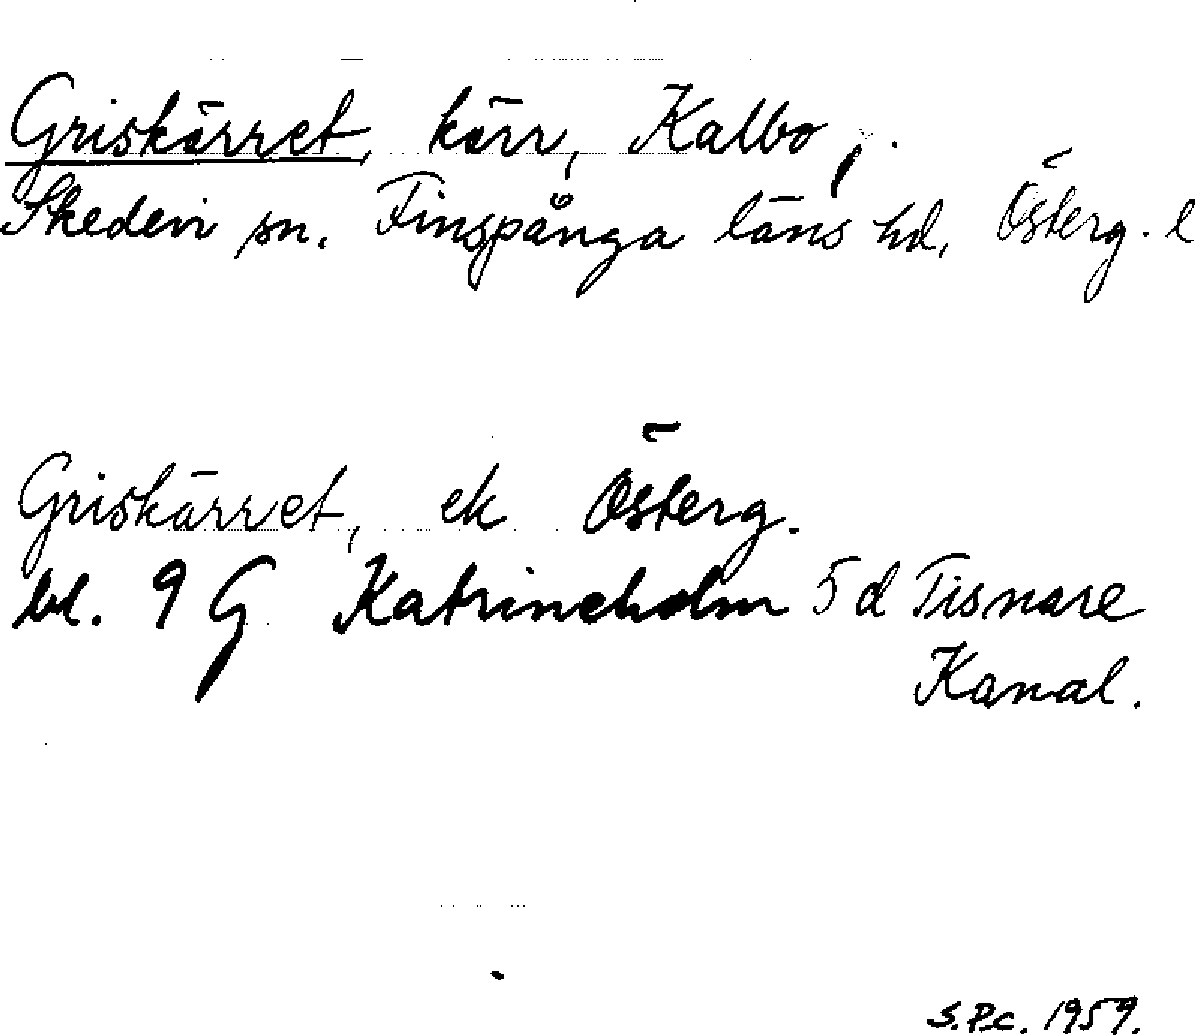 Griskärret, kärr, Kalbo,.
Skedevi sn. Finspånga läns hd, Österg. l
Griskärret, ek Österg.
bl. 9 G Katrineholm 5 d Tisnare
Kanal.
S.P.c. 1959.